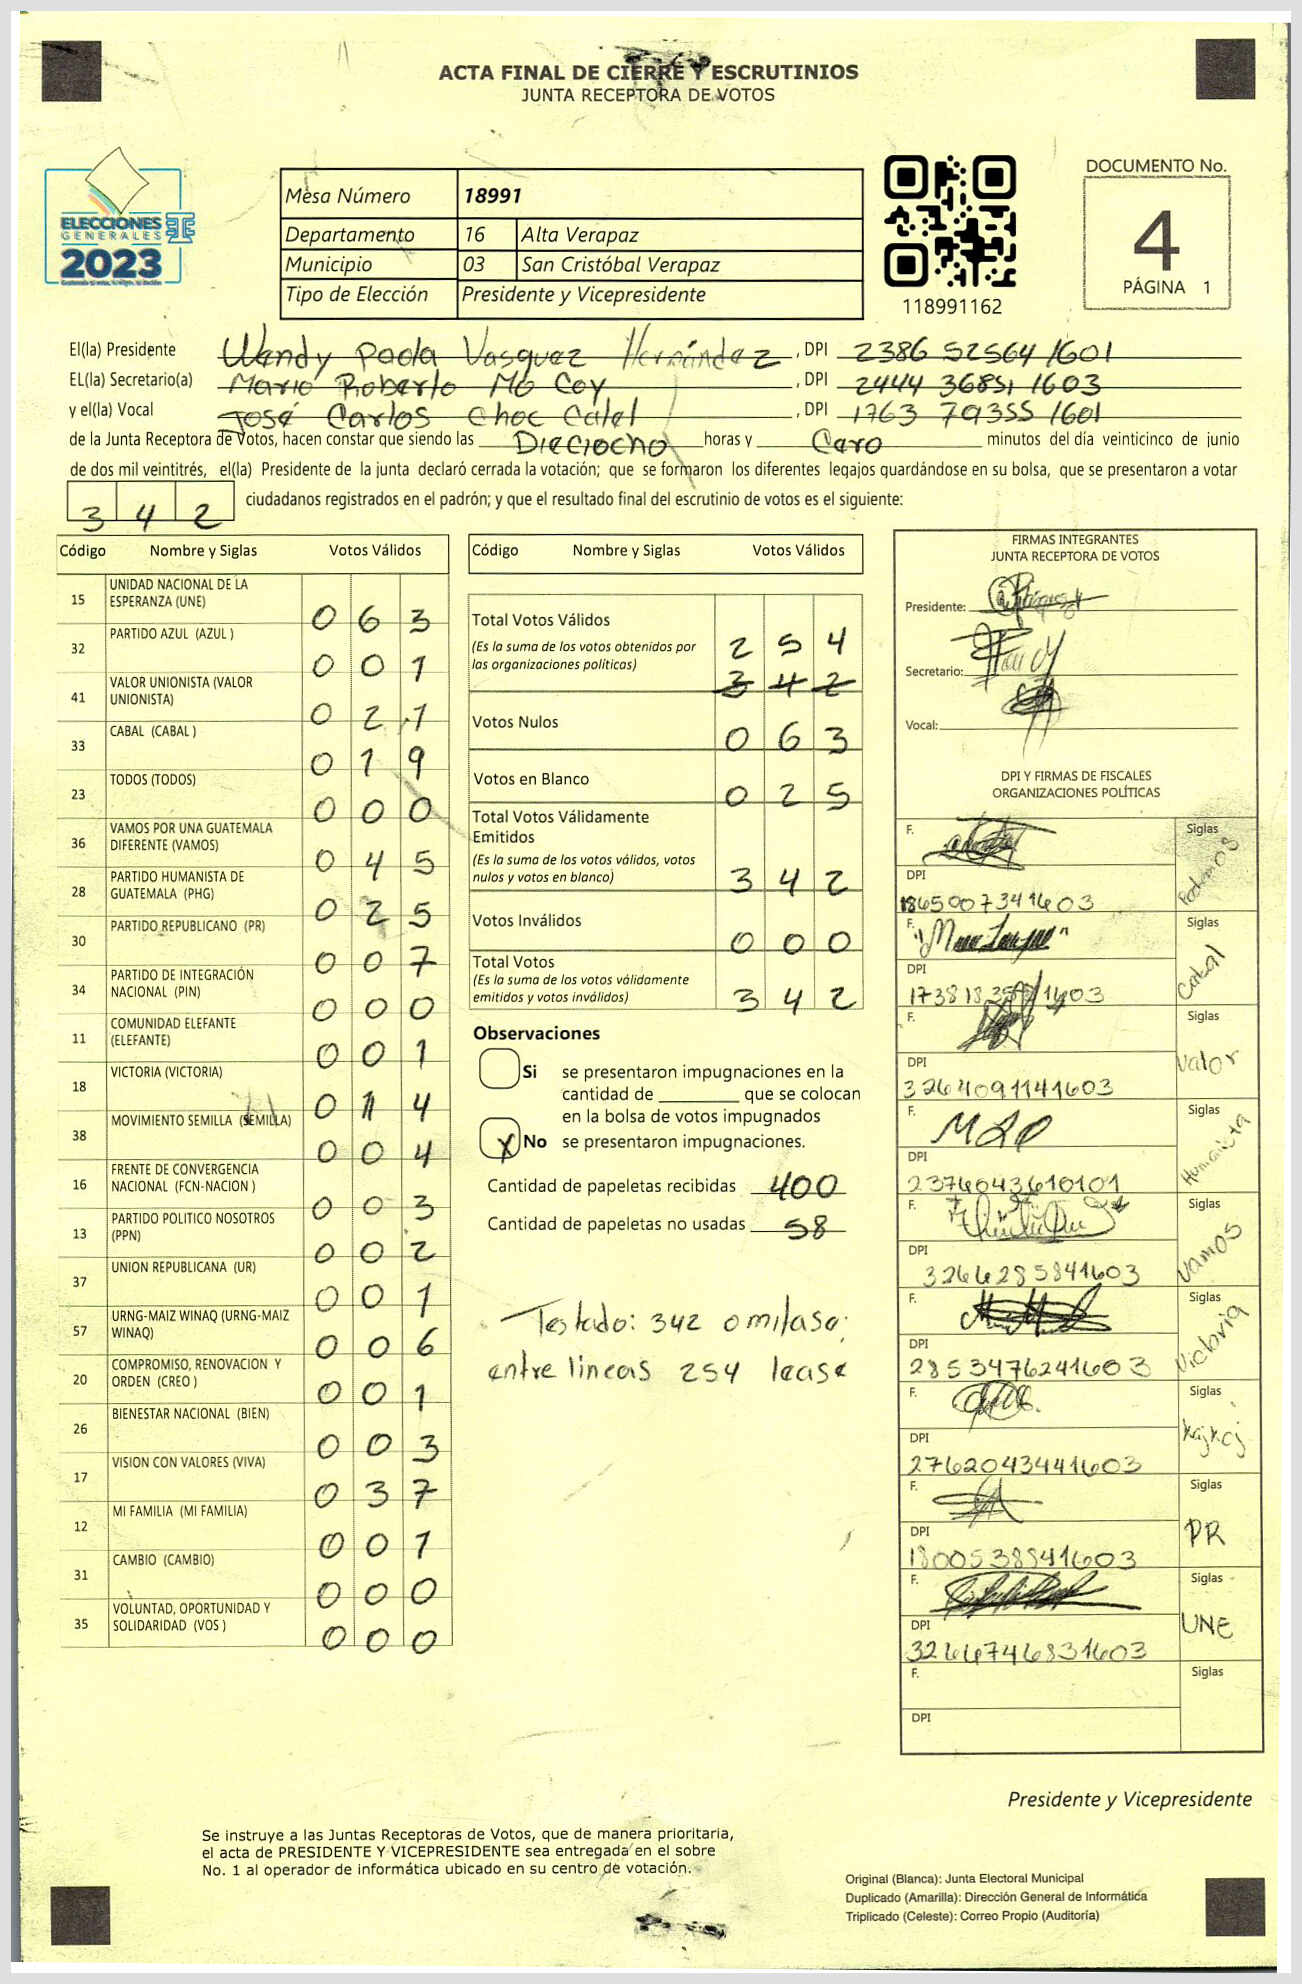 ACTA FINAL DE CIERRE Y ESCRUTINIOS
JUNTA RECEPTORA DE VOTOS
ELECCIONES
GENERALES
2023
Mesa Número 18991
Departamento 16 Alta Verapaz
Municipio 03 San Cristóbal Verapaz
Tipo de Elección Presidente y Vicepresidente
118991162
DOCUMENTO No.
4
PÁGINA 1
El(la) Presidente Wendy Paola Vasquez Hernández , DPI 2386 52564 1601
EL(la) Secretario(a) Mario Roberto Mo Coy , DPI 2444 36851 1603
y el(la) Vocal José Carlos Choc Calel , DPI 1763 79355 1601
de la Junta Receptora de Votos, hacen constar que siendo las Dieciocho horas y Cero minutos del día veinticinco de junio
de dos mil veintitrés, el(la) Presidente de la junta declaró cerrada la votación; que se formaron los diferentes legajos guardándose en su bolsa, que se presentaron a votar
3 4 2 ciudadanos registrados en el padrón; y que el resultado final del escrutinio de votos es el siguiente:
Código Nombre y Siglas Votos Válidos
15 UNIDAD NACIONAL DE LA ESPERANZA (UNE) 0 6 3
32 PARTIDO AZUL (AZUL ) 0 0 1
41 VALOR UNIONISTA (VALOR UNIONISTA) 0 2 1
33 CABAL (CABAL ) 0 1 9
23 TODOS (TODOS) 0 0 0
36 VAMOS POR UNA GUATEMALA DIFERENTE (VAMOS) 0 4 5
28 PARTIDO HUMANISTA DE GUATEMALA (PHG) 0 2 5
30 PARTIDO REPUBLICANO (PR) 0 0 7
34 PARTIDO DE INTEGRACIÓN NACIONAL (PIN) 0 0 0
11 COMUNIDAD ELEFANTE (ELEFANTE) 0 0 1
18 VICTORIA (VICTORIA) 0 1 4
38 MOVIMIENTO SEMILLA (SEMILLA) 0 0 4
16 FRENTE DE CONVERGENCIA NACIONAL (FCN-NACION ) 0 0 3
13 PARTIDO POLITICO NOSOTROS (PPN) 0 0 2
37 UNION REPUBLICANA (UR) 0 0 1
57 URNG-MAIZ WINAQ (URNG-MAIZ WINAQ) 0 0 6
20 COMPROMISO, RENOVACION Y ORDEN (CREO ) 0 0 1
26 BIENESTAR NACIONAL (BIEN) 0 0 3
17 VISION CON VALORES (VIVA) 0 3 7
12 MI FAMILIA (MI FAMILIA) 0 0 1
31 CAMBIO (CAMBIO) 0 0 0
35 VOLUNTAD, OPORTUNIDAD Y SOLIDARIDAD (VOS ) 0 0 0
Código Nombre y Siglas Votos Válidos
Total Votos Válidos
(Es la suma de los votos obtenidos por
las organizaciones políticas)
2 5 4
3 4 2
Votos Nulos 0 6 3
Votos en Blanco 0 2 5
Total Votos Válidamente
Emitidos
(Es la suma de los votos válidos, votos
nulos y votos en blanco) 3 4 2
Votos Inválidos 0 0 0
Total Votos
(Es la suma de los votos válidamente
emitidos y votos inválidos) 3 4 2
Observaciones
Si se presentaron impugnaciones en la
cantidad de ________ que se colocan
en la bolsa de votos impugnados
X No se presentaron impugnaciones.
Cantidad de papeletas recibidas 400
Cantidad de papeletas no usadas 58
Testado: 342 omitase;
entre lineas 254 lease
FIRMAS INTEGRANTES
JUNTA RECEPTORA DE VOTOS
Presidente:
Secretario:
Vocal:
DPI Y FIRMAS DE FISCALES
ORGANIZACIONES POLÍTICAS
F. Siglas Podemos
DPI
1865007341603
F. Siglas Cabal
DPI
F. Siglas Valor
DPI
3264091141603
F. Siglas Humanista
DPI
2376043610101
F. Siglas Vamos
DPI
3266285841603
F. Siglas Victoria
DPI
2853476241603
F. Siglas
DPI
2762043441603
F. Siglas PR
DPI
1800538841603
F. Siglas UNE
DPI
3266746831603
F. Siglas
DPI
Presidente y Vicepresidente
Se instruye a las Juntas Receptoras de Votos, que de manera prioritaria,
el acta de PRESIDENTE Y VICEPRESIDENTE sea entregada en el sobre
No. 1 al operador de informática ubicado en su centro de votación.
Original (Blanca): Junta Electoral Municipal
Duplicado (Amarilla): Dirección General de Informática
Triplicado (Celeste): Correo Propio (Auditoría)